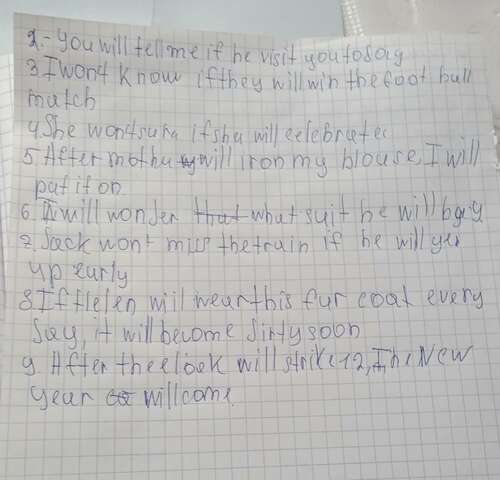 2.- You will tell me if he visit you today
3 I won't know if they will win the foot ball
match
4 She wont sura if sha will celebrates
5 After motha will iron my blouse, I will
put it on
6. I will wonder that what suit he will buy
7. Jack won't miss the train if he will get
up early
8 If Helen will wear this fur coat every
day, it will become dirty soon
9 After the clock will strike 12, The New
year will come.